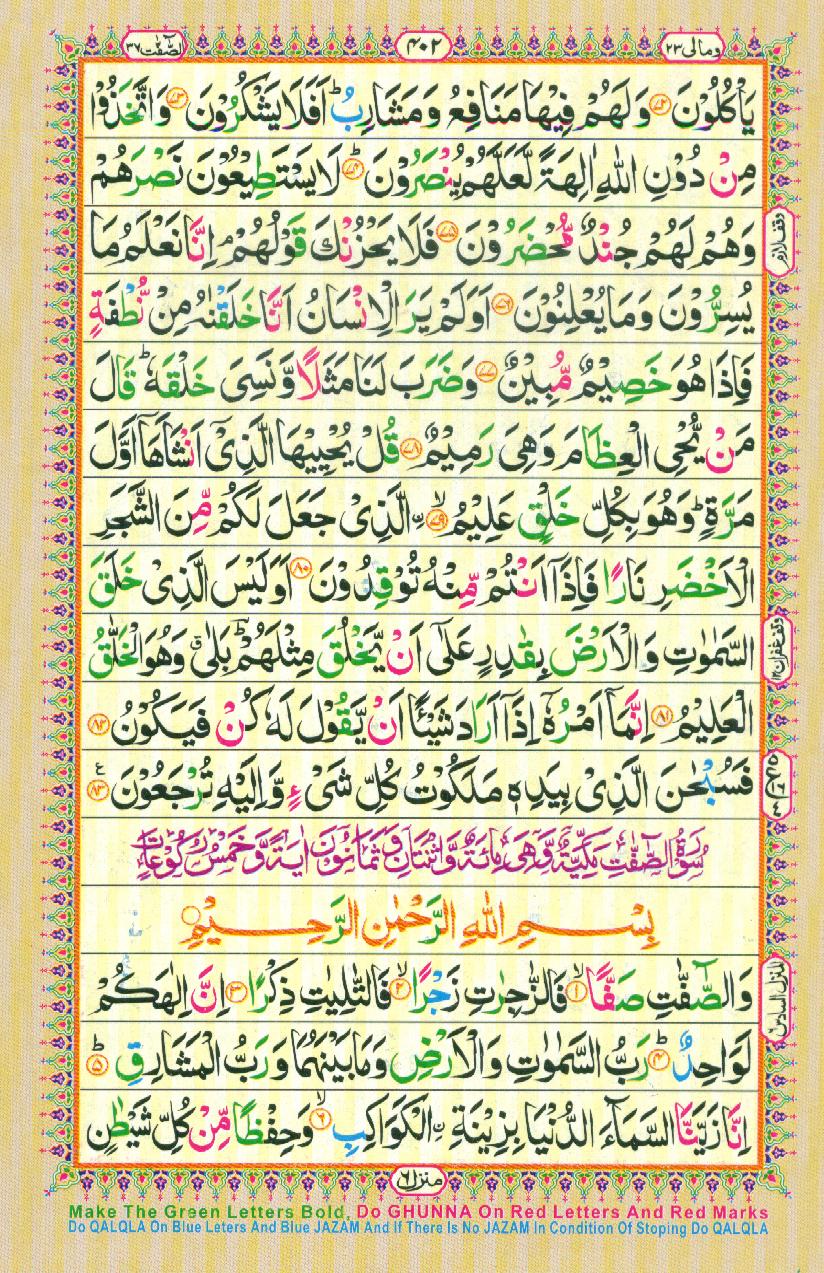 وَمَالِیَ ٢٣
٤٠٢
الصّٰٓفّٰت ٣٧
یَاْكُلُوْنَ ﴿۷۲﴾ وَلَهُمْ فِیْهَا مَنَافِعُ وَمَشَارِبُ ؕ اَفَلَا یَشْكُرُوْنَ ﴿۷۳﴾ وَاتَّخَذُوْا
مِنْ دُوْنِ اللّٰهِ اٰلِهَةً لَّعَلَّهُمْ یُنْصَرُوْنَ ﴿۷۴﴾ؕ لَا یَسْتَطِیْعُوْنَ نَصْرَهُمْ
وَهُمْ لَهُمْ جُنْدٌ مُّحْضَرُوْنَ ﴿۷۵﴾ فَلَا یَحْزُنْكَ قَوْلُهُمْ ۘ اِنَّا نَعْلَمُ مَا
وقف لازم
یُسِرُّوْنَ وَمَا یُعْلِنُوْنَ ﴿۷۶﴾ اَوَلَمْ یَرَ الْاِنْسَانُ اَنَّا خَلَقْنٰهُ مِنْ نُّطْفَةٍ
فَاِذَا هُوَ خَصِیْمٌ مُّبِیْنٌ ﴿۷۷﴾ وَضَرَبَ لَنَا مَثَلًا وَّنَسِیَ خَلْقَهٗ ؕ قَالَ
مَنْ یُّحْیِ الْعِظَامَ وَهِیَ رَمِیْمٌ ﴿۷۸﴾ قُلْ یُحْیِیْهَا الَّذِیْۤ اَنْشَاَهَاۤ اَوَّلَ
مَرَّةٍ ؕ وَهُوَ بِكُلِّ خَلْقٍ عَلِیْمُ ﴿۷۹﴾ۙ ۨالَّذِیْ جَعَلَ لَكُمْ مِّنَ الشَّجَرِ
الْاَخْضَرِ نَارًا فَاِذَاۤ اَنْتُمْ مِّنْهُ تُوْقِدُوْنَ ﴿۸۰﴾ اَوَلَیْسَ الَّذِیْ خَلَقَ
السَّمٰوٰتِ وَالْاَرْضَ بِقٰدِرٍ عَلٰۤی اَنْ یَّخْلُقَ مِثْلَهُمْ ؕ بَلٰی ۗ وَهُوَ الْخَلّٰقُ
وقف غفران
الْعَلِیْمُ ﴿۸۱﴾ اِنَّمَاۤ اَمْرُهٗۤ اِذَاۤ اَرَادَ شَیْئًا اَنْ یَّقُوْلَ لَهٗ كُنْ فَیَكُوْنُ ﴿۸۲﴾
فَسُبْحٰنَ الَّذِیْ بِیَدِهٖ مَلَكُوْتُ كُلِّ شَیْءٍ وَّاِلَیْهِ تُرْجَعُوْنَ ﴿۸۳﴾
سُوْرَةُ الصّٰٓفّٰتِ مَكِّیَّةٌ وَّهِیَ مِائَةٌ وَّاثْنَتَانِ وَثَمَانُوْنَ اٰیَةً وَّخَمْسُ رُكُوْعَاتٍ
بِسْمِ اللّٰهِ الرَّحْمٰنِ الرَّحِیْمِ
وَالصّٰٓفّٰتِ صَفًّا ﴿۱﴾ۙ فَالزّٰجِرٰتِ زَجْرًا ﴿۲﴾ۙ فَالتّٰلِیٰتِ ذِكْرًا ﴿۳﴾ اِنَّ اِلٰهَكُمْ
المنزل السادس
لَوَاحِدٌ ﴿۴﴾ؕ رَبُّ السَّمٰوٰتِ وَالْاَرْضِ وَمَا بَیْنَهُمَا وَرَبُّ الْمَشَارِقِ ﴿۵﴾ؕ
اِنَّا زَیَّنَّا السَّمَآءَ الدُّنْیَا بِزِیْنَةِ ۨالْكَوَاكِبِ ﴿۶﴾ۙ وَحِفْظًا مِّنْ كُلِّ شَیْطٰنٍ
منزل ٦
Make The Green Letters Bold, Do GHUNNA On Red Letters And Red Marks
Do QALQLA On Blue Leters And Blue JAZAM And If There Is No JAZAM In Condition Of Stoping Do QALQLA